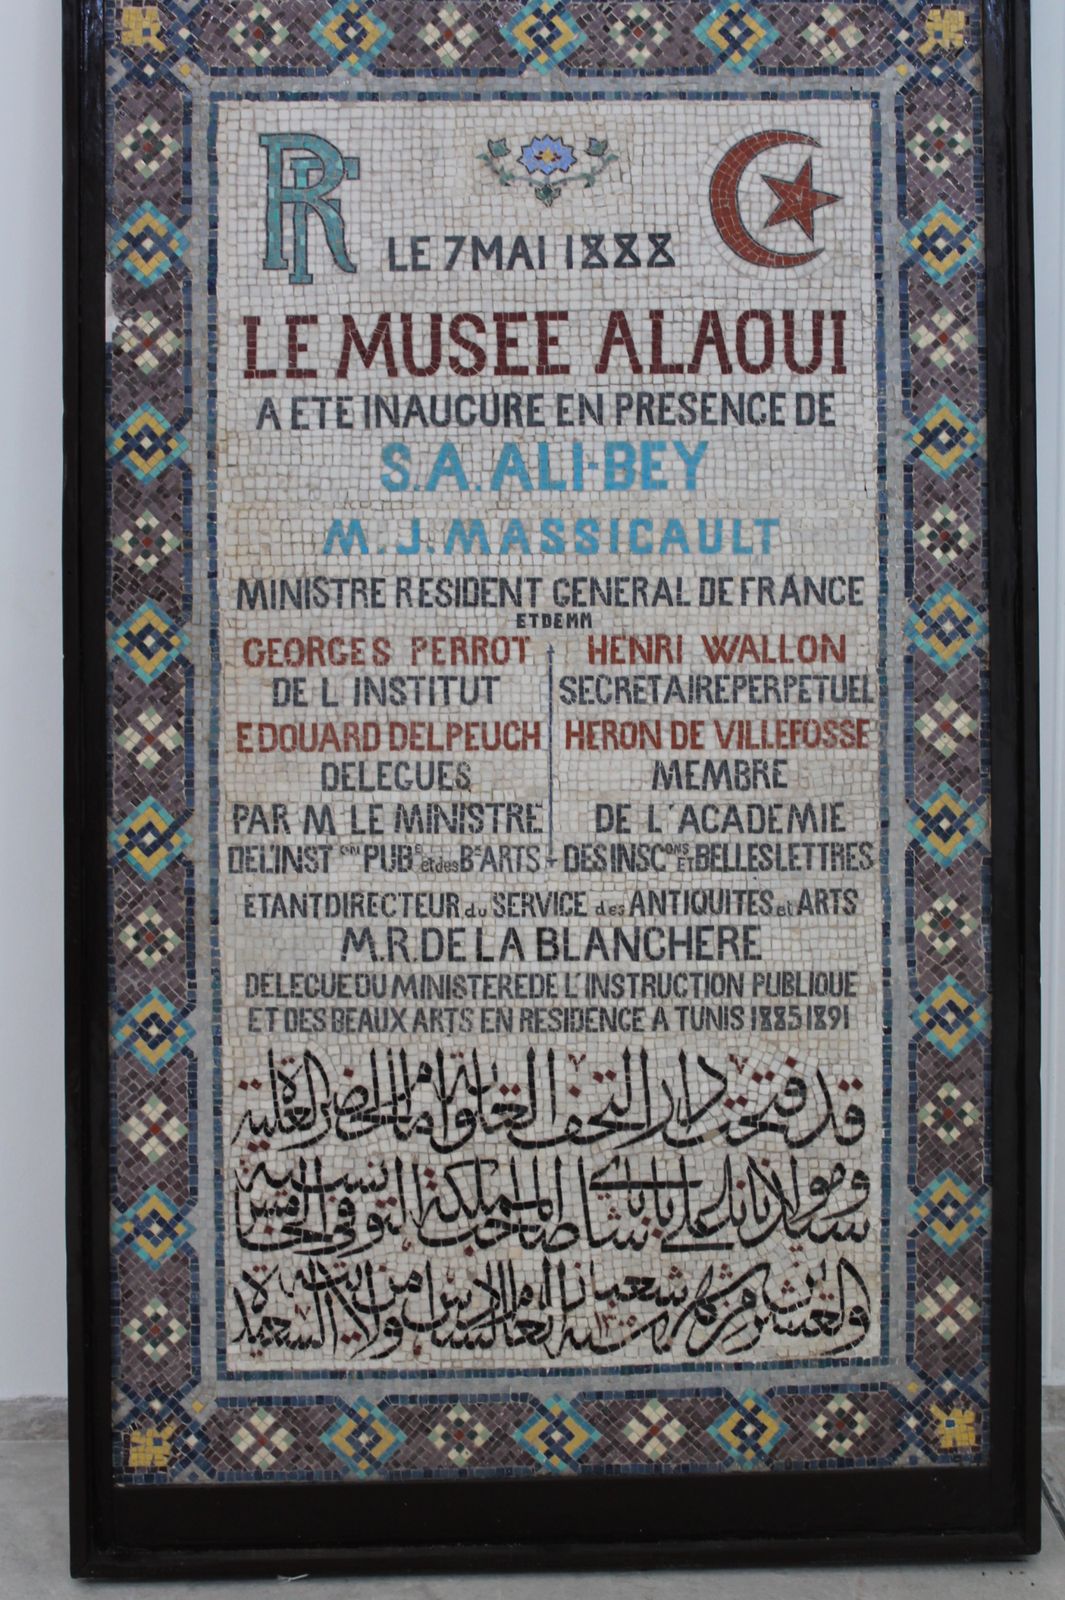 RF
LE 7 MAI 1888
LE MUSEE ALAOUI
A ETE INAUGURE EN PRESENCE DE
S.A. ALI-BEY
M. J. MASSICAULT
MINISTRE RESIDENT GENERAL DE FRANCE
ET DE MM
GEORGES PERROT
DE L'INSTITUT
EDOUARD DELPEUCH
DELEGUES
PAR M. LE MINISTRE
DE L'INST ION PUBE et des BX ARTS
HENRI WALLON
SECRETAIRE PERPETUEL
HERON DE VILLEFOSSE
MEMBRE
DE L'ACADEMIE
DES INSCONS ET BELLES LETTRES
ETANT DIRECTEUR du SERVICE des ANTIQUITES et ARTS
M.R. DE LA BLANCHERE
DELEGUE DU MINISTERE DE L'INSTRUCTION PUBLIQUE
ET DES BEAUX ARTS EN RESIDENCE A TUNIS 1885 1891
قد فتحت دار التحف العلوية أمام الحضرة العلية
سيدنا ومولانا علي باشا باي صاحب المملكة التونسية في الخامس
والعشرين من شهر شعبان سنة ١٣٠٥ العام السادس من ولايته السعيدة